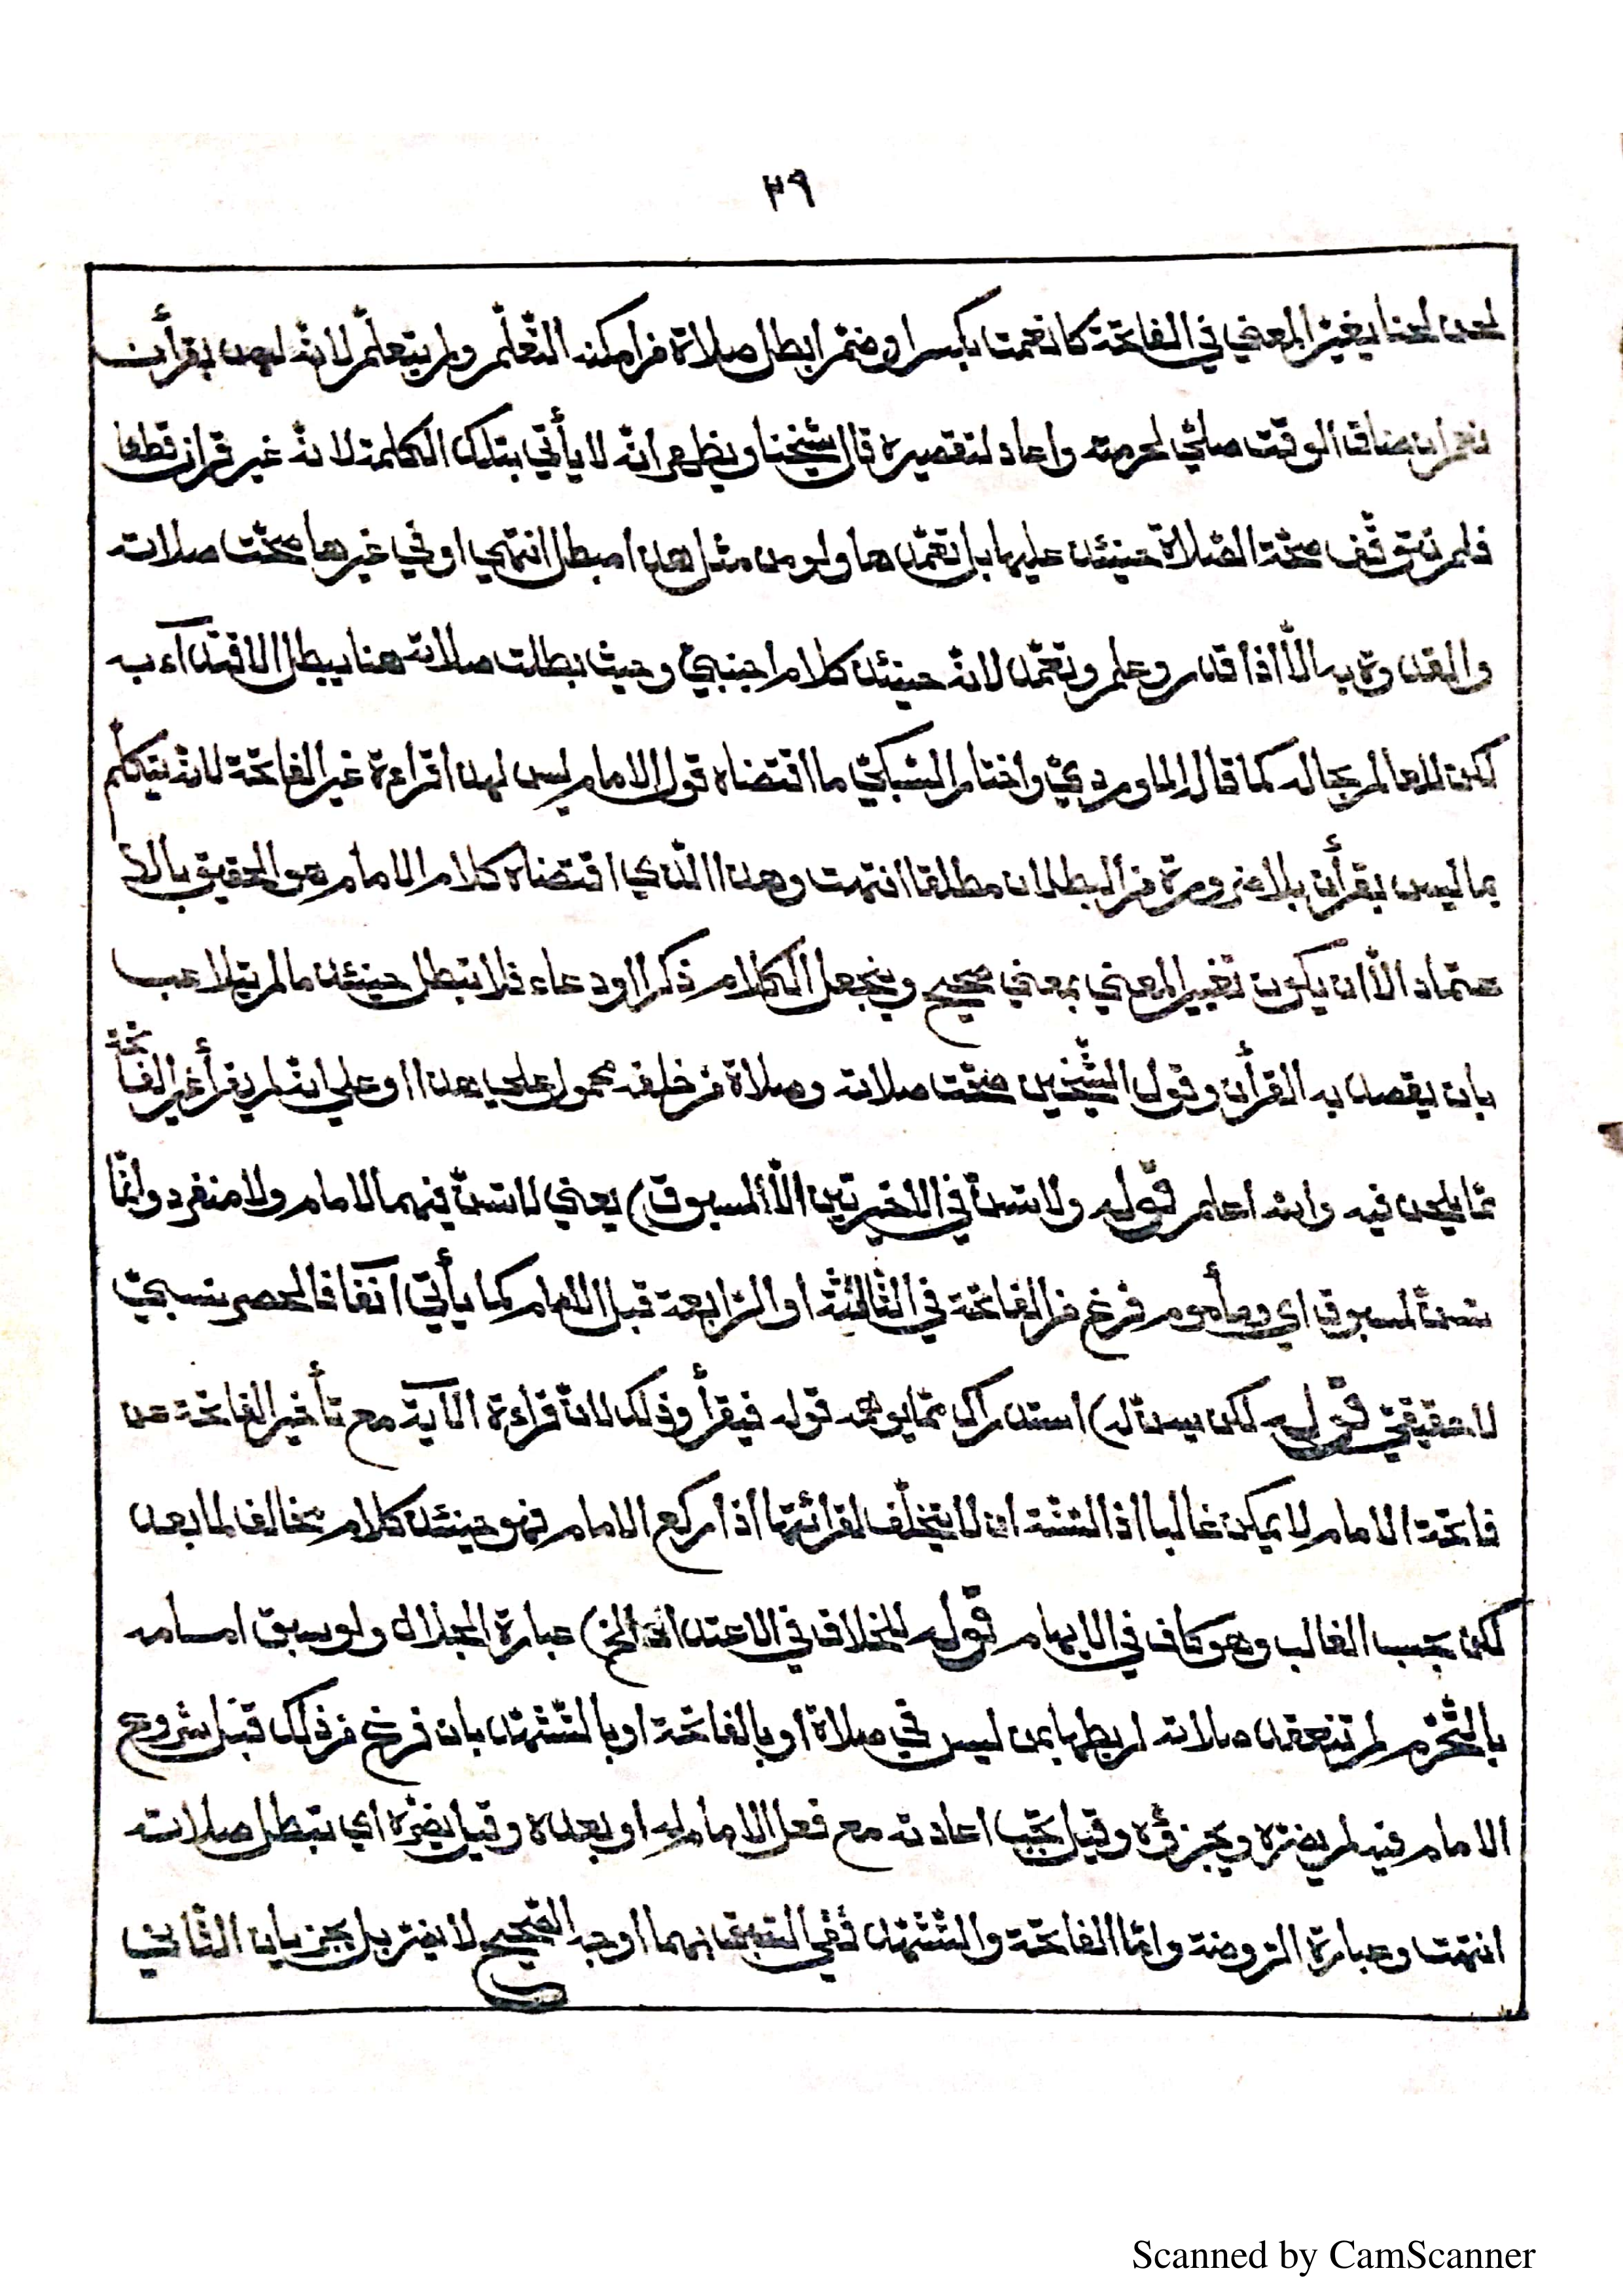 ٢٩
لحن لحنا يغيّر المعني في الفاتحة كانعمت بكسر او ضم ابطل صلاة من امكنه التّعلّم ولم يتعلّم لانّه ليس بقرأن
نعم ان ضاق الوقت صلّي لحرمته واعاد لتقصيره قال شيخنا ويظهر انّه لا يأتي بتلك الكلمة لانّه غير قرأن قطعا
فلم تتوقّف صحّة الصّلاة حينئذ عليها بل تعمّدها ولو من مثل هذا مبطل انتهي او في غيرها صحّت صلاته
والقدوة به الّا اذا قدر وعلم وتعمّد لانّه حينئذ كلام اجنبيّ وحيث بطلت صلاته هنا يبطل الاقتداء به
لكن للعالم بحاله كما قاله الماورديّ واختار السّبكيّ ما اقتضاه قول الامام ليس لهذا قراءة غير الفاتحة لانّه يتكلّم
بما ليس بقرأن بلا ضرورة من البطلان مطلقا انتهت وهذا الّذي اقتضاه كلام الامام هو الحقيق بالا
عتماد الّا ان يكون تغيير المعني بمعني صحيح وينجعل الكلام ذكرا او دعاء فلا تبطل حينئذ ما لم يتلاعب
بان يقصد به القرأن وقول الشّيخين صحّت صلاته وصلاة من خلفه محمول علي هذا او علي انّه لم يقرأ غير الفاتحة
ممّا يلحن فيه والله اعلم قوله ولا تسنّ في الاخيرتين الّا لمسبوق) يعني لا تسنّ فيهما لامام ولا منفرد وانّما
تسنّ لمسبوق اي ومأموم فرغ من الفاتحة في الثّالثة او الرّابعة قبل الامام كما يأتي آنفا فالحصر نسبيّ
لا حقيقيّ قوله لكن يسنّ له) استدراك ممّا يوهمه قوله فيقرأ وذلك لانّ قراءة الآية مع تأخير الفاتحة عن
فاتحة الامام لا يمكن غالبا اذ السّنّة ان لا يتخلّف لقرائتها اذا ركع الامام فهو حينئذ كلام مخالف لما بعد
لكن بحسب الغالب وهو كاف في الايهام قوله للخلاف في الاعتداد الخ) عبارة الجلال ولو سبق امامه
بالتّحرّم لم تنعقد صلاته لربطها بمن ليس في صلاة او بالفاتحة او بالتّشهّد بان فرغ من ذلك قبل شروع
الامام فيه لم يضرّه ويجزؤه وقيل تجب اعادته مع فعل الامام له او بعده وقيل يضرّه اي تبطل صلاته
انتهت وعبارة الرّوضة وامّا الفاتحة والتّشهّد ففي السّبق بهما اوجه الصّحيح لا يضرّ بل يجزيان الثّاني
Scanned by CamScanner